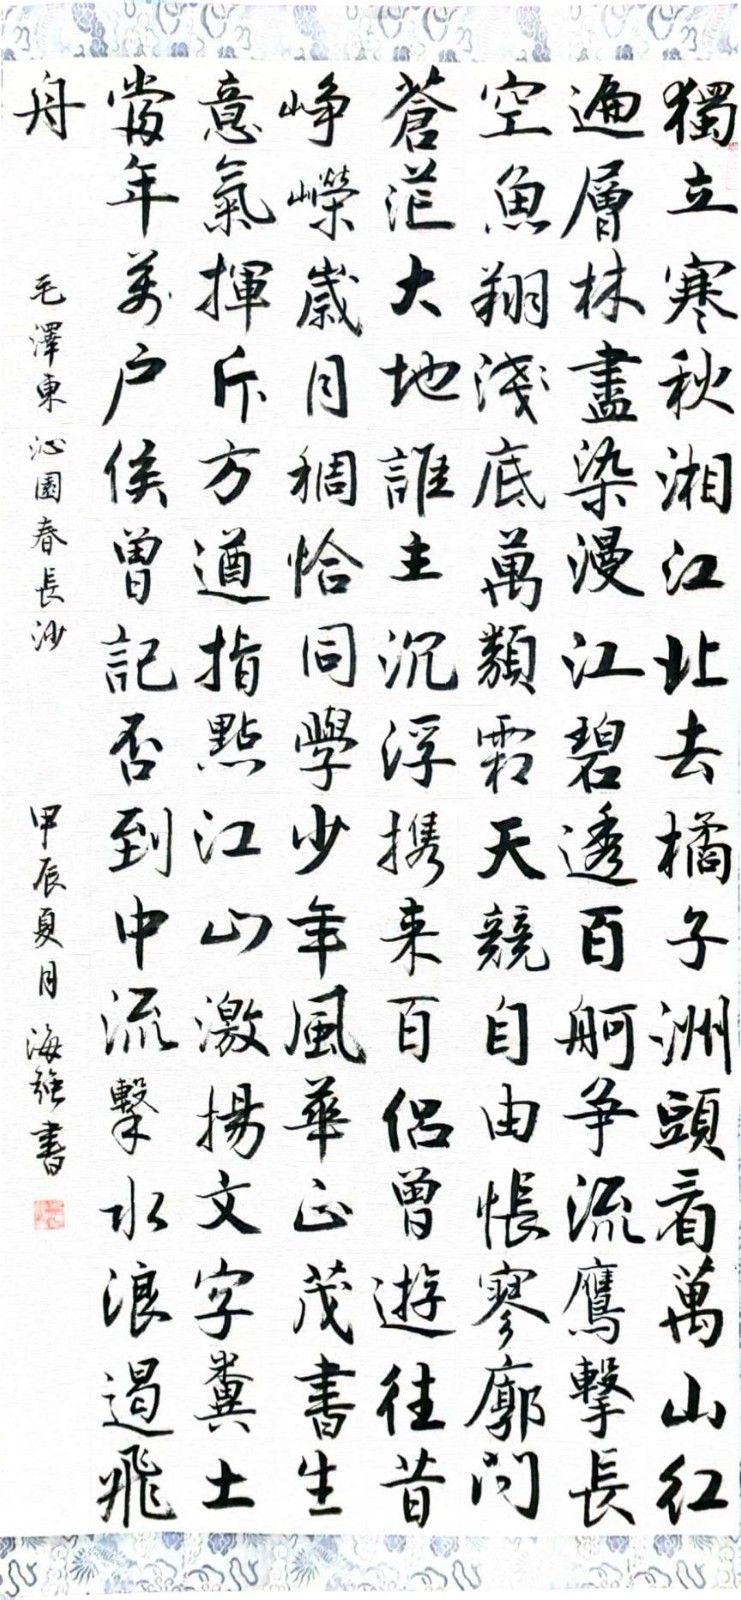 獨立寒秋湘江北去橘子洲頭看萬山紅
遍層林盡染漫江碧透百舸争流鷹擊長
空魚翔淺底萬類霜天競自由悵寥廓問
蒼茫大地誰主沉浮携来百侣曾遊往昔
崢嶸歲月稠恰同學少年風華正茂書生
意氣揮斥方遒指點江山激揚文字糞土
當年萬户侯曾記否到中流擊水浪遏飛
舟
毛澤東沁園春長沙
甲辰夏月海强書